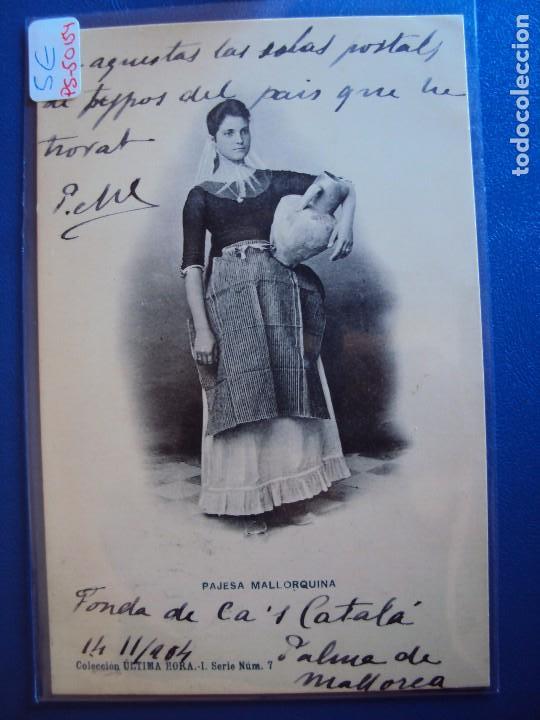 SE
PS-50154
aquestas las solas postals
de typos del pais que he
trovat
PAJESA MALLORQUINA
Fonda de Ca's Catalá
14 11/904
Palma de
Mallorca
Colección ÚLTIMA HORA.-I. Serie Núm. 7
todocoleccion